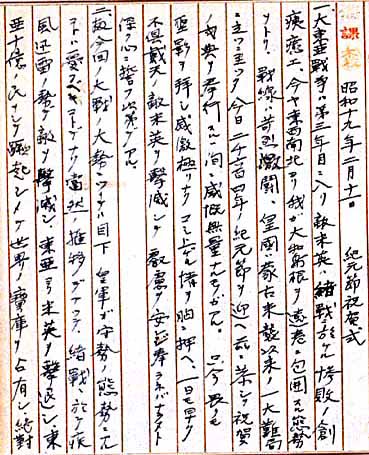 昭和十九年二月十一日　紀元節祝賀式
一、大東亜戦争ハ第三年目ニ入リ敵米英ハ緒戦ニ於ケル惨敗ノ創
痍癒エ、今ヤ東西南北ヨリ我ガ大和島根ヲ遠巻ニ包囲スル態勢
ヲトリ、戦線ハ苛烈激闘、皇國ハ蒙古来襲以来ノ一大難局
ニ立ツ　今日二千六百四年ノ紀元節ヲ迎ヘ茲ニ恭シク祝賀
ノ式典ヲ挙行スル洵ニ感慨無量ナルモノガアル。只今長クモ
御影ヲ拝シ感激極リナクコミ上ゲル情ヲ胸ニ押ヘ、一日モ早ク
不倶戴天ノ敵米英ヲ撃滅シテ宸慮ヲ安ジ奉ラネバナラヌト
深ク心ニ誓フ次第デアル。
二、扨今回ノ大戦ノ大勢ハ目下皇軍ガ守勢ノ態勢ニ
当然ノ推移デアツテ、緒戦ニ於ケル疾
風迅雷ノ勢デ敵ヲ撃滅シ、東亜ヨリ米英ヲ撃退シ、東
亜十億ノ民ヲシテ蹶起セシメテ世界ノ寶庫ヲ占有シ絶對